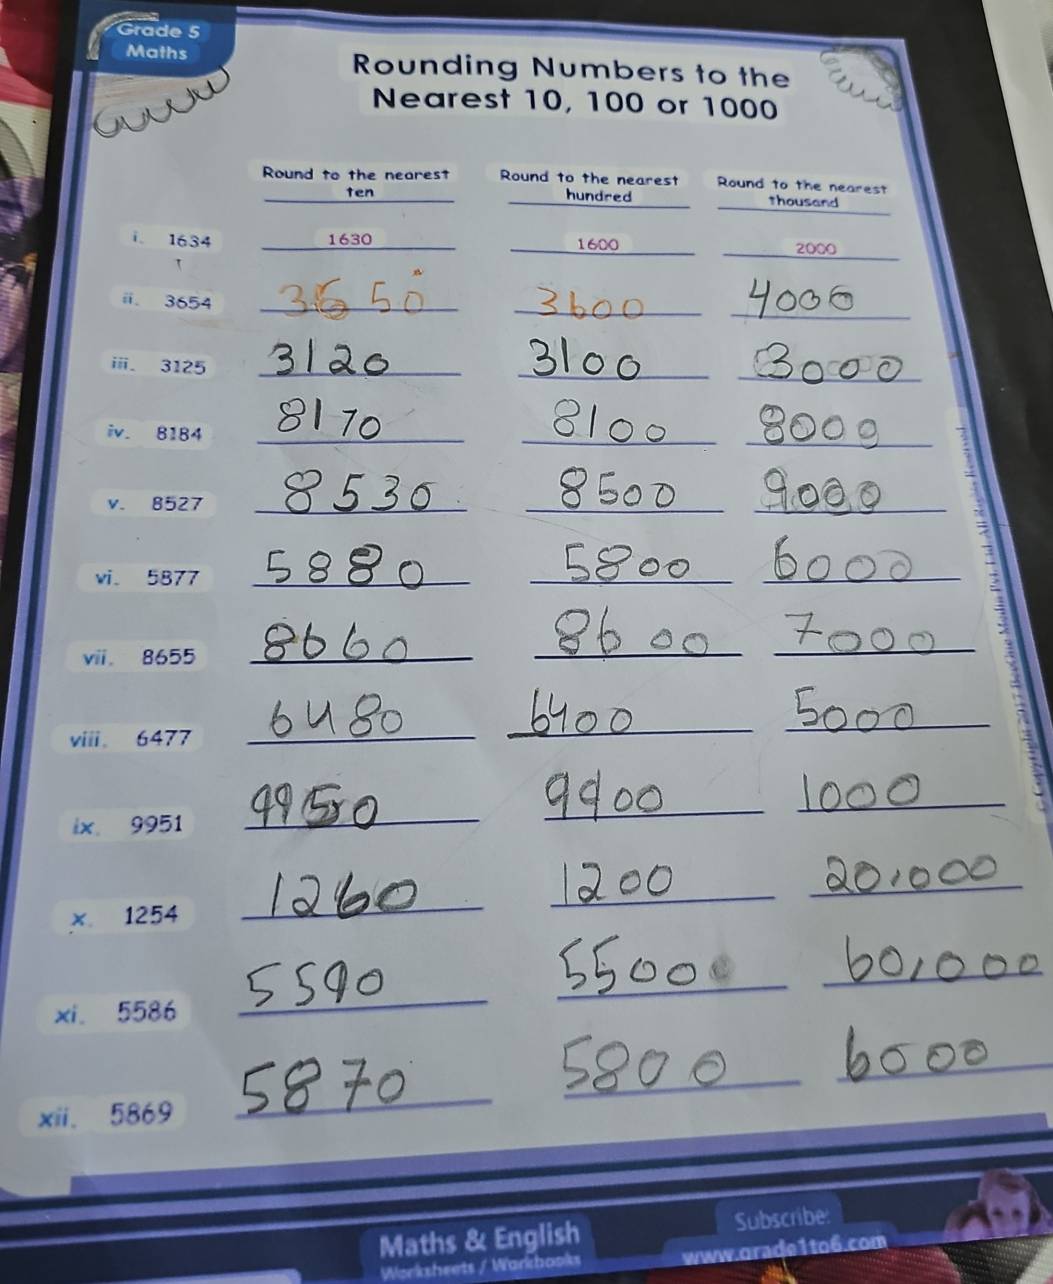 Grade 5
Maths
Rounding Numbers to the
Nearest 10, 100 or 1000
Round to the nearest ten Round to the nearest hundred Round to the nearest thousand
i. 1634 1630 1600 2000
ii. 3654 3650 3600 4000
iii. 3125 3120 3100 3000
iv. 8184 8170 8100 8000
v. 8527 8530 8500 9000
vi. 5877 5880 5800 6000
vii. 8655 8660 8600 7000
viii. 6477 6480 6400 5000
ix. 9951 9950 9900 1000
x. 1254 1260 1200 20,000
xi. 5586 5590 5500 60,000
xii. 5869 5870 5800 6000
Maths & English
Worksheets / Workbooks
Subscribe:
www.grade1to6.com